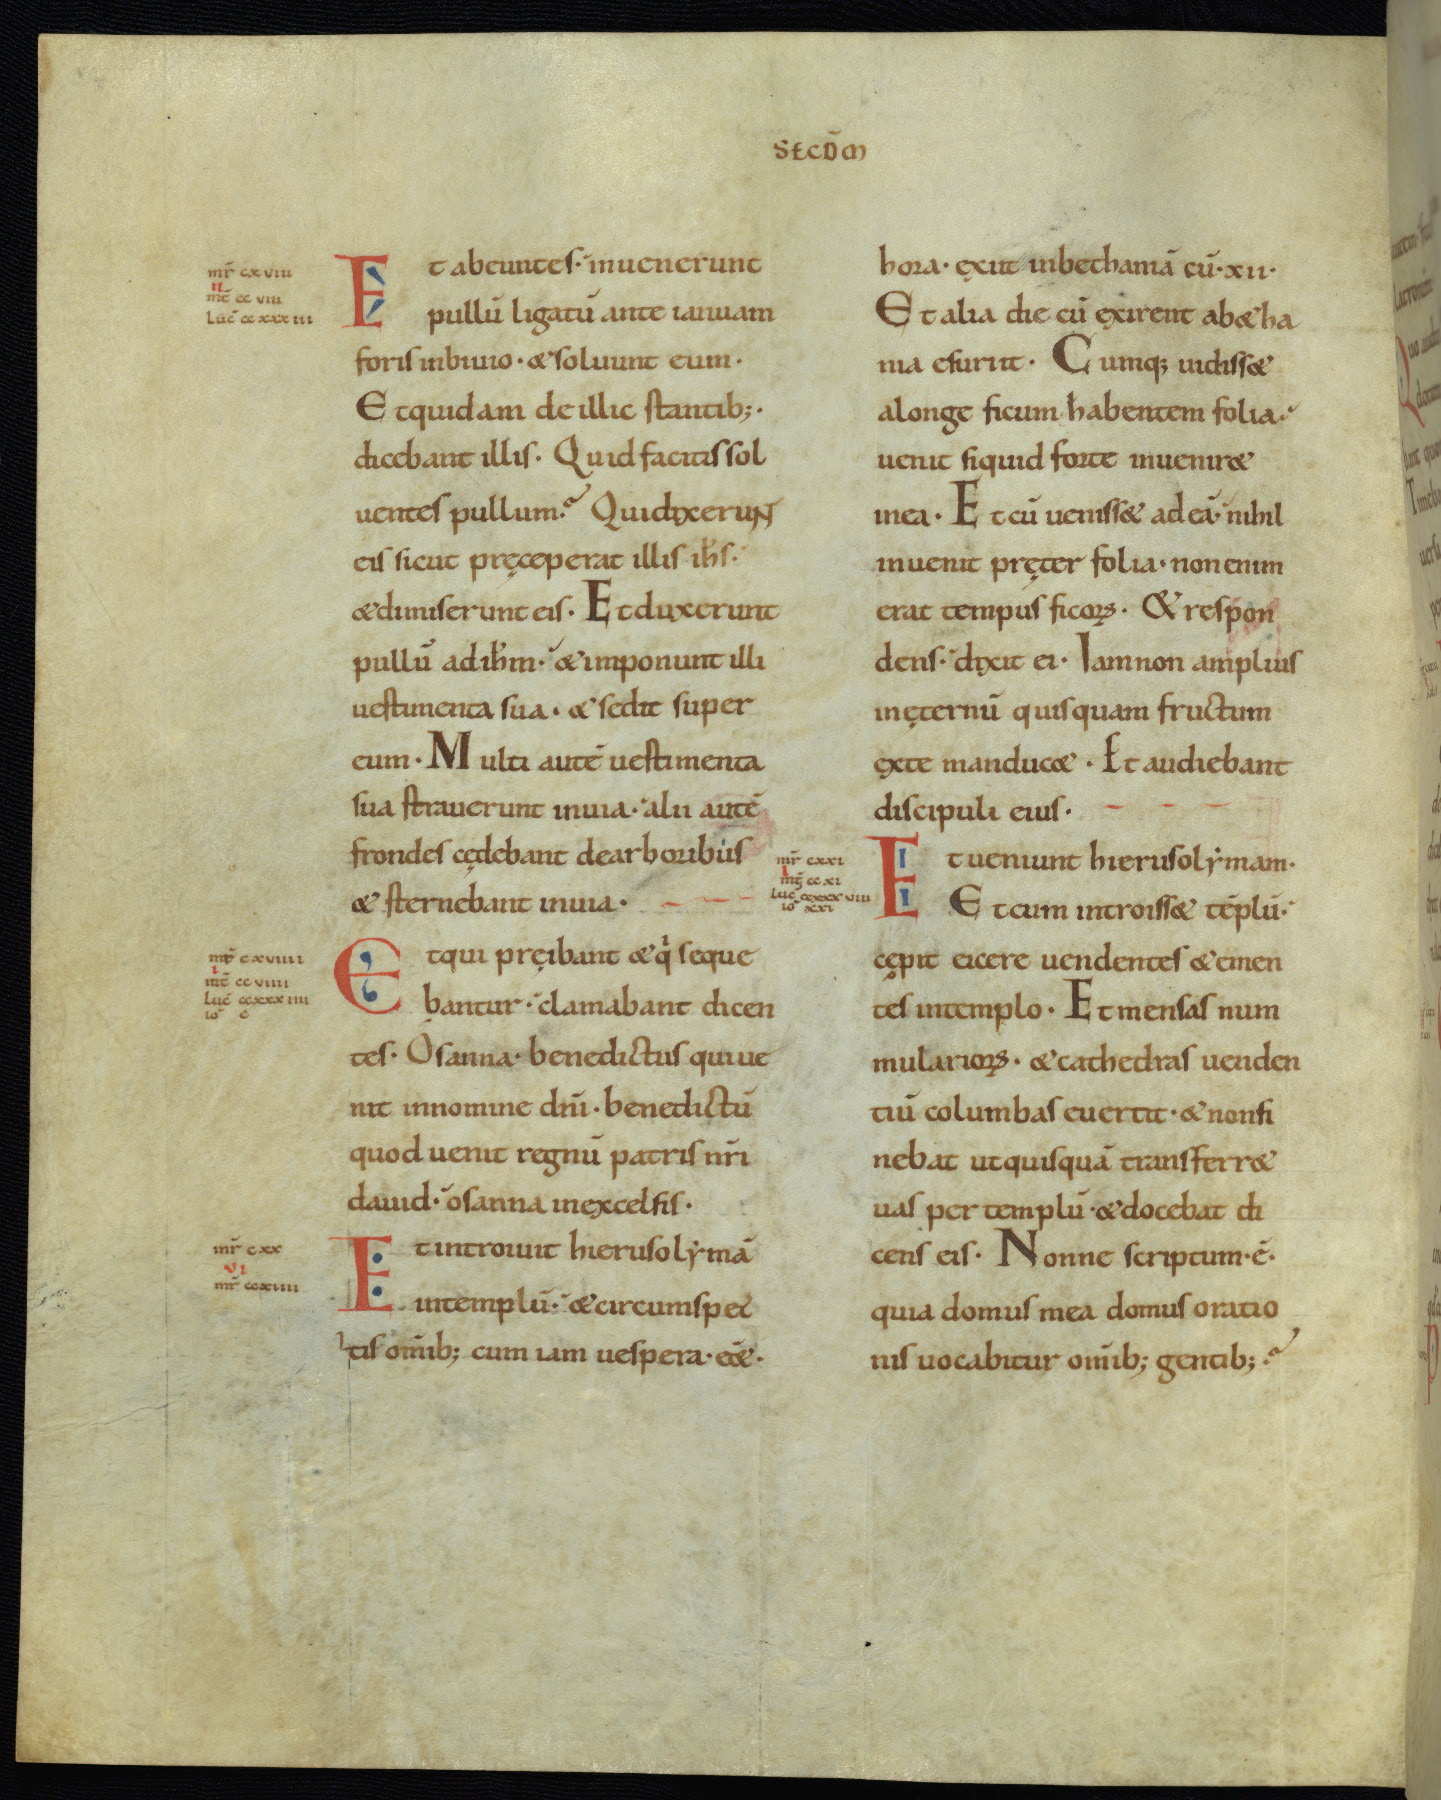 SECD̄M
mr̄ cxviii
ii
mt̄ ccviii
Luc̄ ccxxxiii
Et abeuntes· inuenerunt
pullū ligatū ante ianuam
foris inbiuio· & soluunt eum·
Et quidam de illic stantib;·
dicebant illis· Quid facitis sol
uentes pullum? Qui dixeruNT
eis sicut pręceperat illis ih̄s·
& dimiserunt eis· Et duxerunt
pullū ad ih̄m· & imponunt illi
uestimenta sua· & sedit super
eum· Multi autē uestimenta
sua strauerunt inuia· alii autē
frondes cędebant dearboribus
& sternebant inuia·
mr̄ cxviiii
i
mt̄ ccviiii
Luc̄ ccxxxiiii
io c
Et qui pręibant & qi seque
bantur· clamabant dicen
tes· Osanna· benedictus qui ue
nit innomine dn̄i· benedictū
quod uenit regnū patris nr̄i
dauid· osanna inexcelsis·
mr̄ cxx
vi
mt̄ ccxiiii
Et introiuit hierusolẏmā
intemplū· & circumspec
tis om̄ib; cum iam uespera· eēt·
hora· exiit inbethaniā cū· xii·
Et alia die cū exirent ab&ha
nia esuriit· Cumq; uidiss&
alonge ficum habentem folia·
uenit siquid forte inuenir&
inea· Et cū ueniss& ad eā· nihil
inuenit pręter folia· non enim
erat tempus ficoꝝ· & respon
dens· dixit ei· Iam non amplius
inęternū quisquam fructum
exte manduc&· Et audiebant
discipuli eius·
mr̄ cxxi
i
mt̄ ccxi
Luc̄ ccxxxviii
io xxi
Et ueniunt hierusolẏmam·
Et cum introiss& tēplū·
cępit eicere uendentes & emen
tes intemplo· Et mensas num
mularioꝝ· & cathedras uenden
tiū columbas euertit· & non si
nebat ut quisquā transferr&
uas per templū· & docebat di
cens eis· Nonne scriptum· ē·
quia domus mea domus oratio
nis uocabitur om̄ib; gentib;?